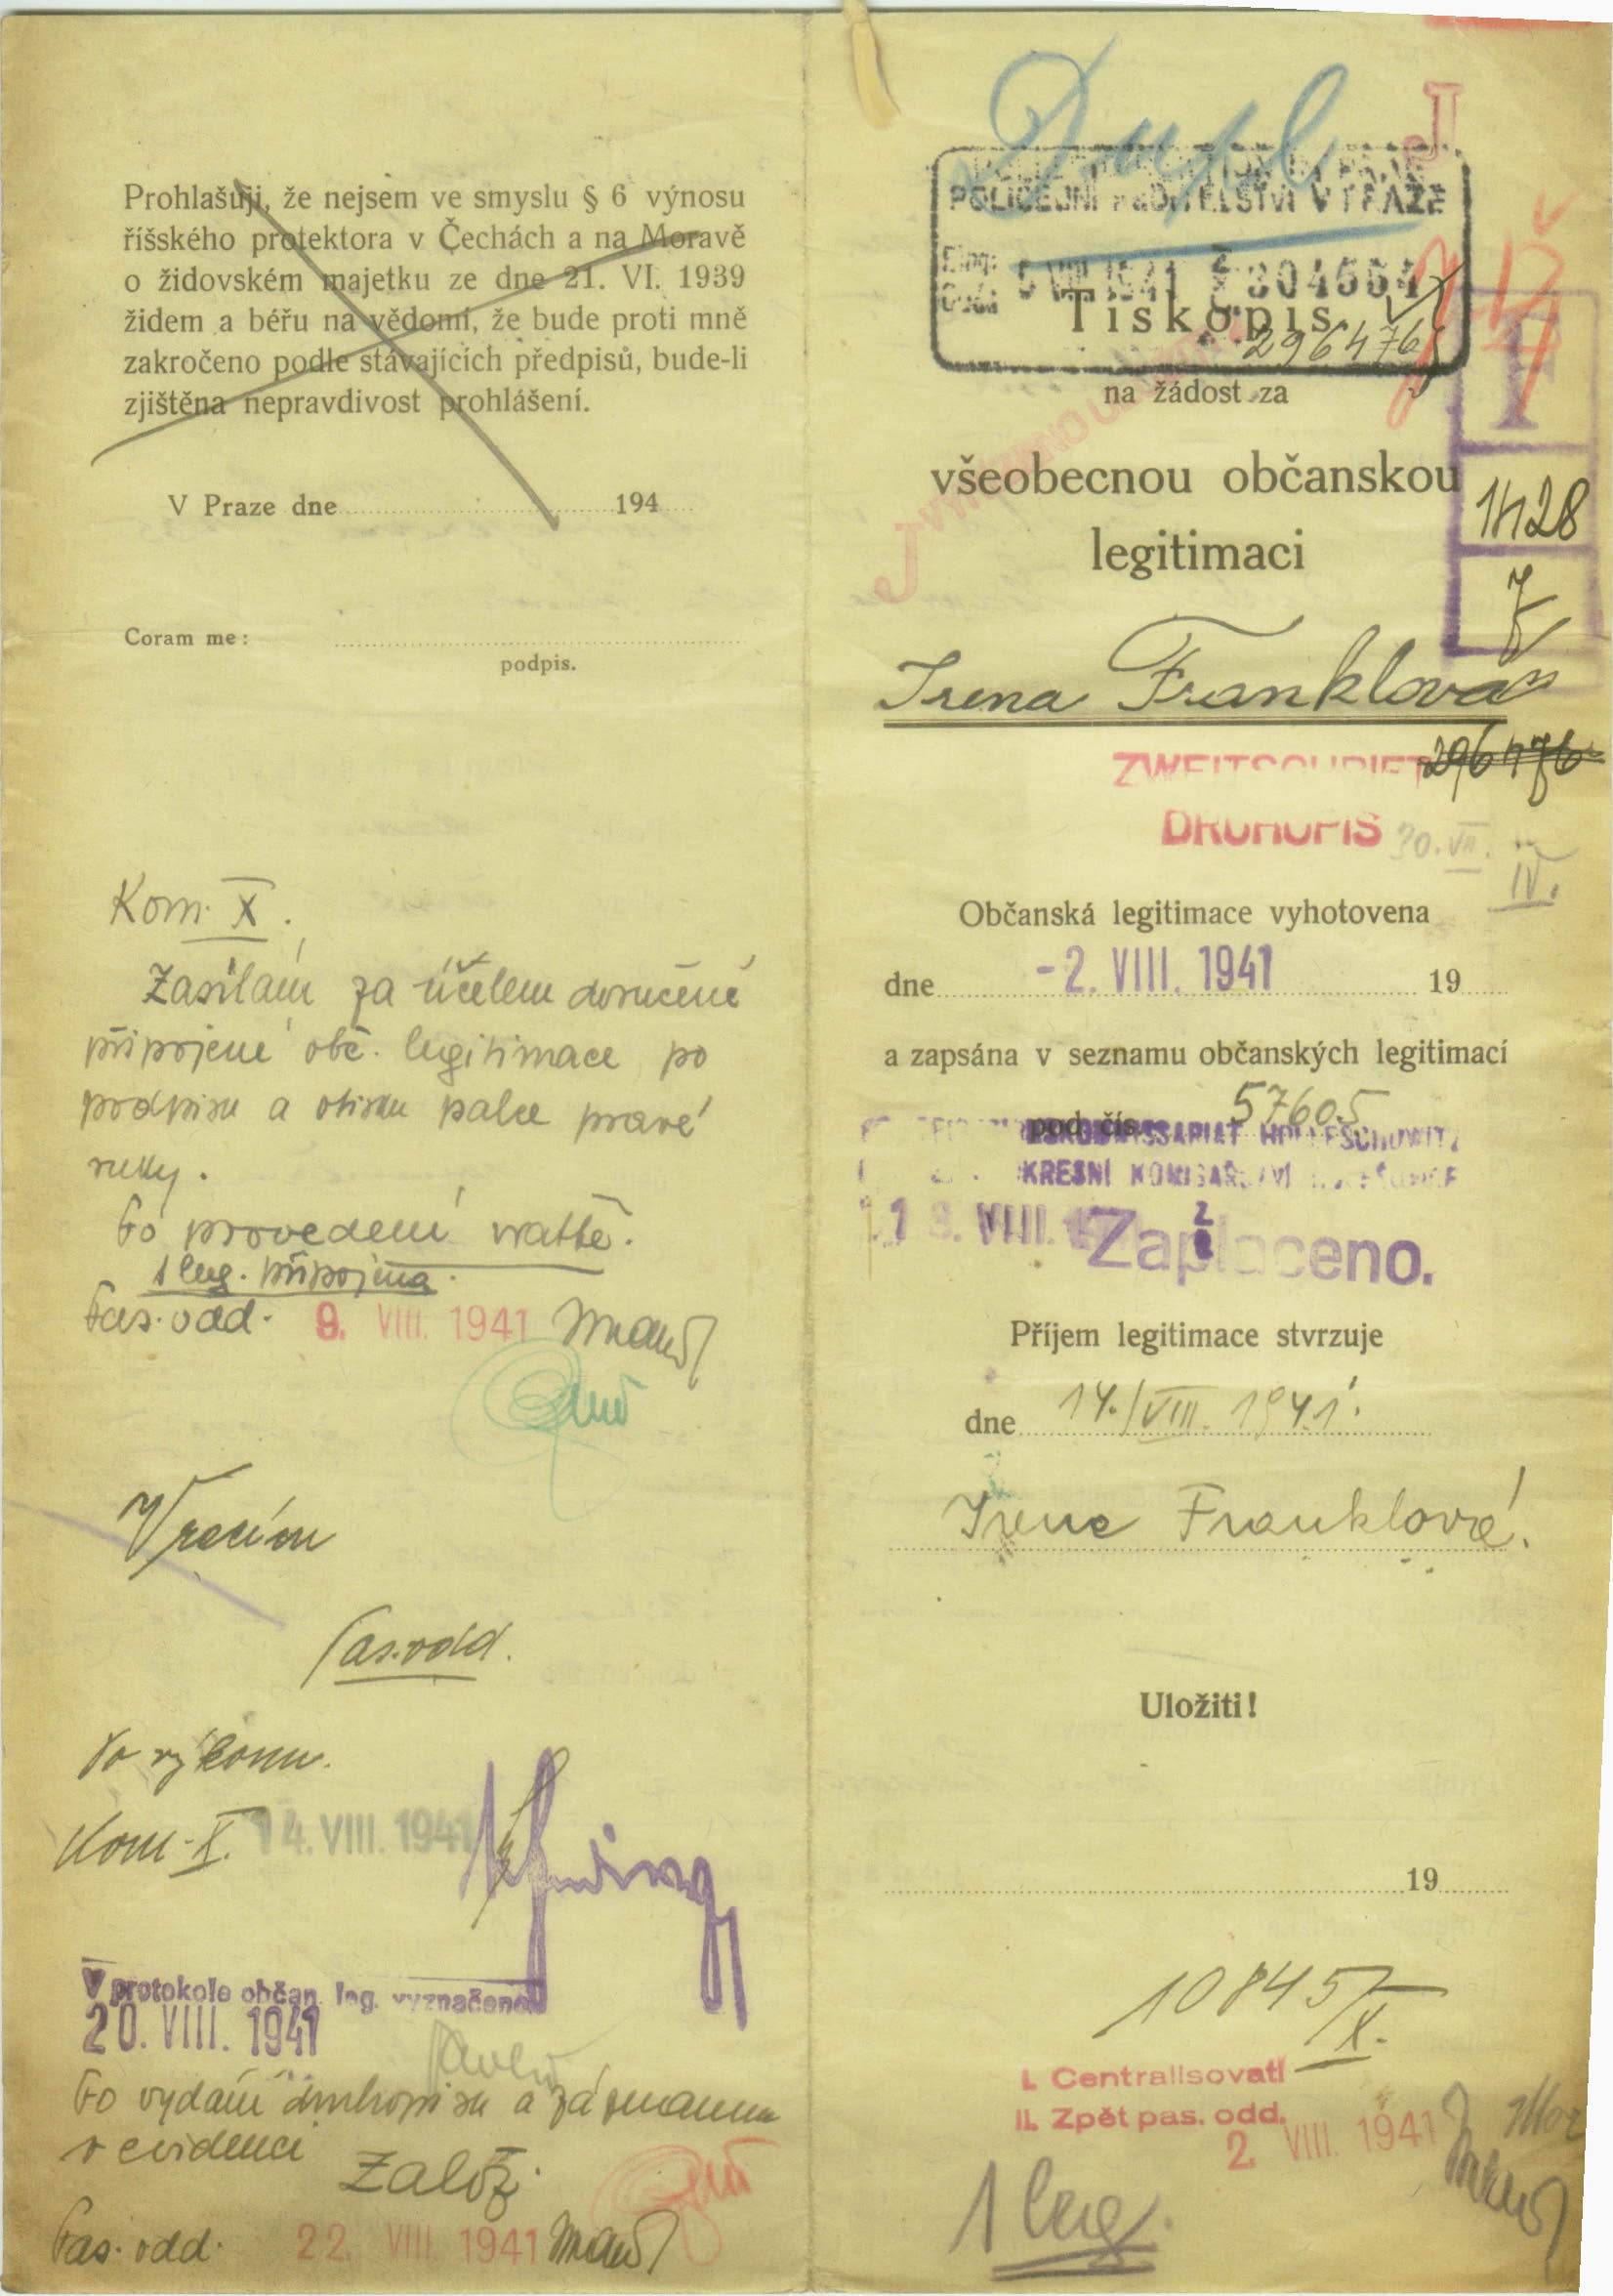 Prohlašuji, že nejsem ve smyslu § 6 výnosu
říšského protektora v Čechách a na Moravě
o židovském majetku ze dne 21. VI. 1939
židem a béřu na vědomí, že bude proti mně
zakročeno podle stávajících předpisů, bude-li
zjištěna nepravdivost prohlášení.
V Praze dne 194
Coram me:
podpis.
Kom. X.
Zasílám za účelem doručení
připojené obč. legitimace po
podpisu a otisku palce pravé
ruky.
Po provedení vraťte.
1 leg. připojena.
Pas. odd. 9. VIII. 1941
Vracím
Pas. odd.
Po výkonu.
Kom. X. 14. VIII. 1941
V protokole občan. leg. vyznačeno
20. VIII. 1941
Po vydání druhopisu a záznamu
v evidenci
Založ.
Pas. odd. 22. VIII. 1941
Dupl
J
POLICEJNÍ ŘEDITELSTVÍ V PRAZE
5 VIII 1941 304554
Tiskopis
296476
na žádost za
všeobecnou občanskou
legitimaci
J
1428
7
Irena Franklová
ZWEITSCHRIFT
296476
DRUHOPIS
30. VII.
IV.
Občanská legitimace vyhotovena
dne -2. VIII. 1941 19
a zapsána v seznamu občanských legitimací
pod čís. 57605
KOMMISSARIAT HOLLESCHOWITZ
OKRESNÍ KOMISAŘSTVÍ HOLEŠOVICE
VIII. Zaplaceno.
Příjem legitimace stvrzuje
dne 14./VIII. 1941.
Irena Franklová.
Uložiti!
19
10845/X.
I. Centralisovati
II. Zpět pas. odd.
2. VIII. 1941
1 leg.